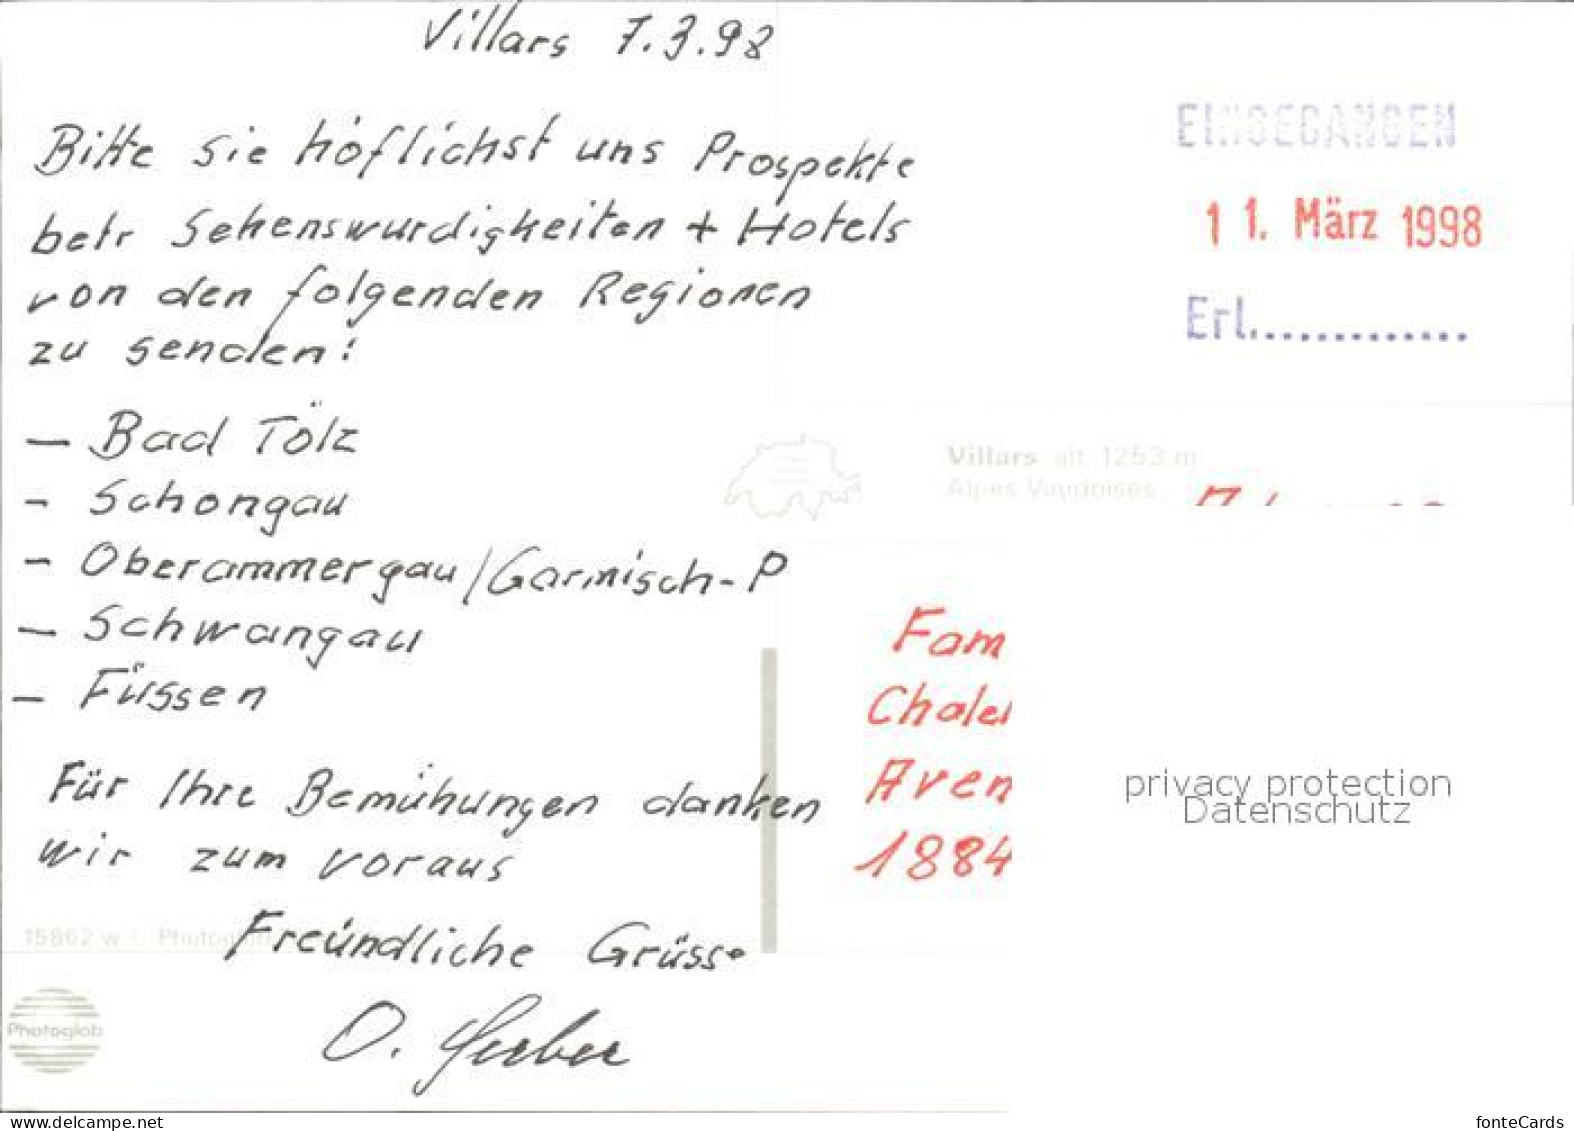 Villars 7.3.98
Bitte sie höflichst uns Prospekte
betr Sehenswurdigkeiten + Hotels
von den folgenden Regionen
zu senden:
– Bad Tölz
– Schongau
– Oberammergau/Garmisch-P
– Schwangau
– Füssen
Für Ihre Bemühungen danken
wir zum voraus
Freundliche Grüsse
O.
EINGEGANGEN
11. März 1998
Erl.............
Villars alt. 1253 m
Alpes Vaudoises
Fam
Chalet
Aven
1884
privacy protection
Datenschutz
15862 w
Photoglob
www.delcampe.net
fonteCards